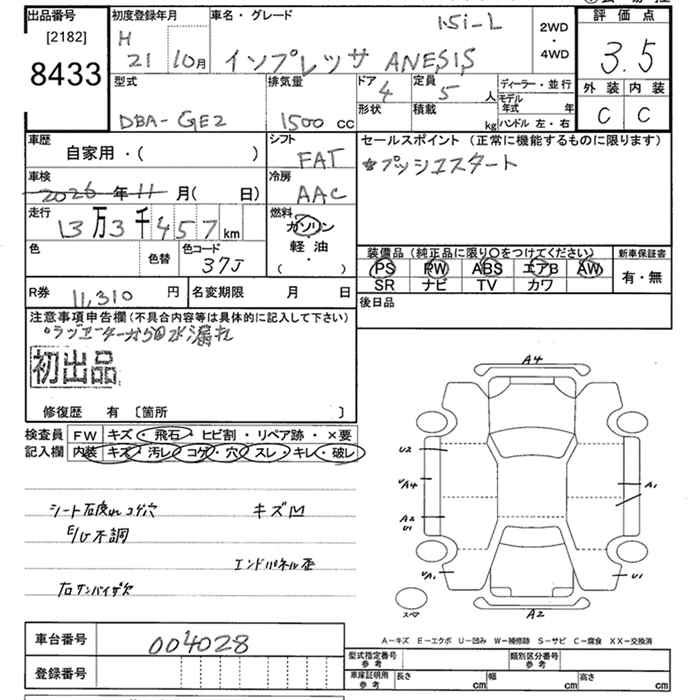 出品番号
[2182]
8433
初度登録年月
H
21 10月
車名・グレード
1.5i-L
インプレッサ ANESIS
2WD
・
4WD
評価点
3.5
外装 内装
C C
型式
DBA-GE2
排気量
1500 cc
ドア
4
定員
5 人
形状
積載
kg
ディーラー・並行
モデル年式 年
ハンドル 左・右
車歴
自家用・( )
シフト
FAT
セールスポイント (正常に機能するものに限ります)
☆プッシュスタート
車検
2026年11月( 日)
冷房
AAC
走行
13万3千457km
燃料
ガソリン
軽油
( ・ )
色
色替
色コード
37J
装備品 (純正品に限り〇をつけてください)
PS PW ABS エアB AW
SR ナビ TV カワ
新車保証書
有・無
R券
11,310 円
名変期限 月 日
後日品
注意事項申告欄 (不具合内容等は具体的に記入して下さい)
ラジエーターから水漏れ
初出品
修復歴 有 〔箇所 〕
検査員 FW キズ・飛石・ヒビ割・リペア跡・×要
記入欄 内装 キズ・汚レ・コゲ・穴・スレ・キレ・破レ
シート
コゲ穴
キズ凹
E/G不調
エンドパネル歪
右サンバイザ欠
A4
U2
A2
U1
A1
U1
A2
スペア
A-キズ E-エクボ U-凹み W-補修跡 S-サビ C-腐食 XX-交換済
車台番号
004028
登録番号
型式指定番号
参考
類別区分番号
参考
車庫証明用
参考
長さ cm
幅 cm
高さ cm